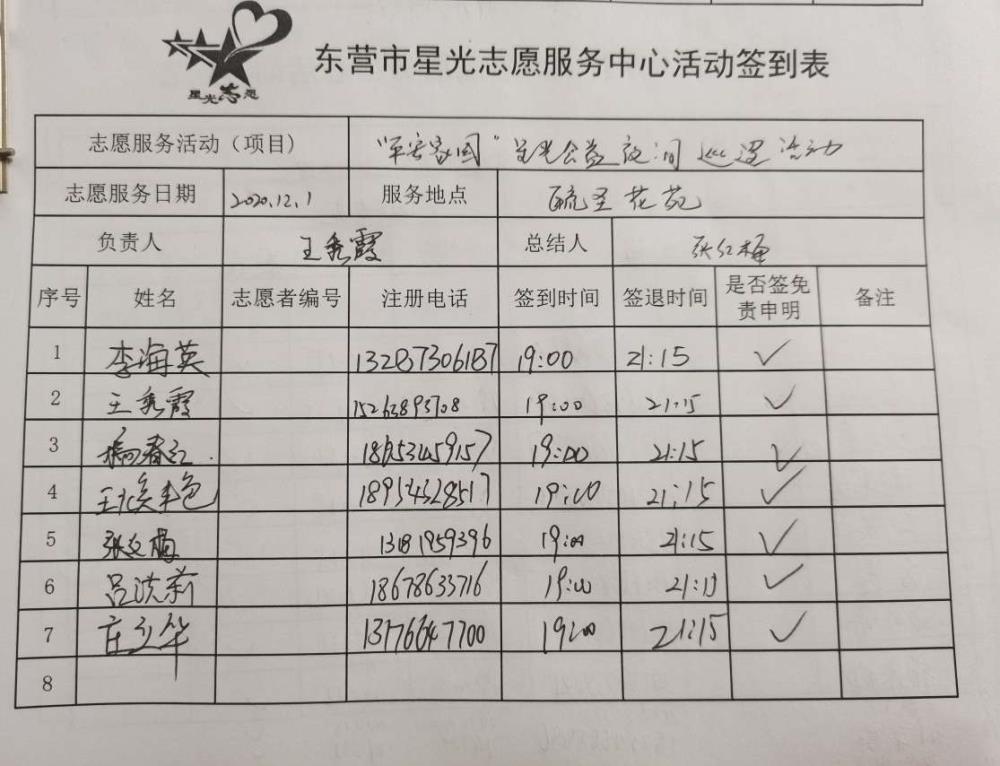 星光志愿
东营市星光志愿服务中心活动签到表
志愿服务活动（项目） “平安家园”星光公益夜间巡逻活动
志愿服务日期 2020.12.1 服务地点 毓圣花苑
负责人 王秀霞 总结人 张红梅
序号 姓名 志愿者编号 注册电话 签到时间 签退时间 是否签免责申明 备注
1 李海英 13287306187 19:00 21:15 ✓
2 王秀霞 15263893708 19:00 21:15 ✓
3 杨春红 19:00 21:15 ✓
4 18954328517 19:00 21:15 ✓
5 19:00 21:15 ✓
6 吕洪新 18678633716 19:00 21:15 ✓
7 庄立华 13176647700 19:00 21:15 ✓
8